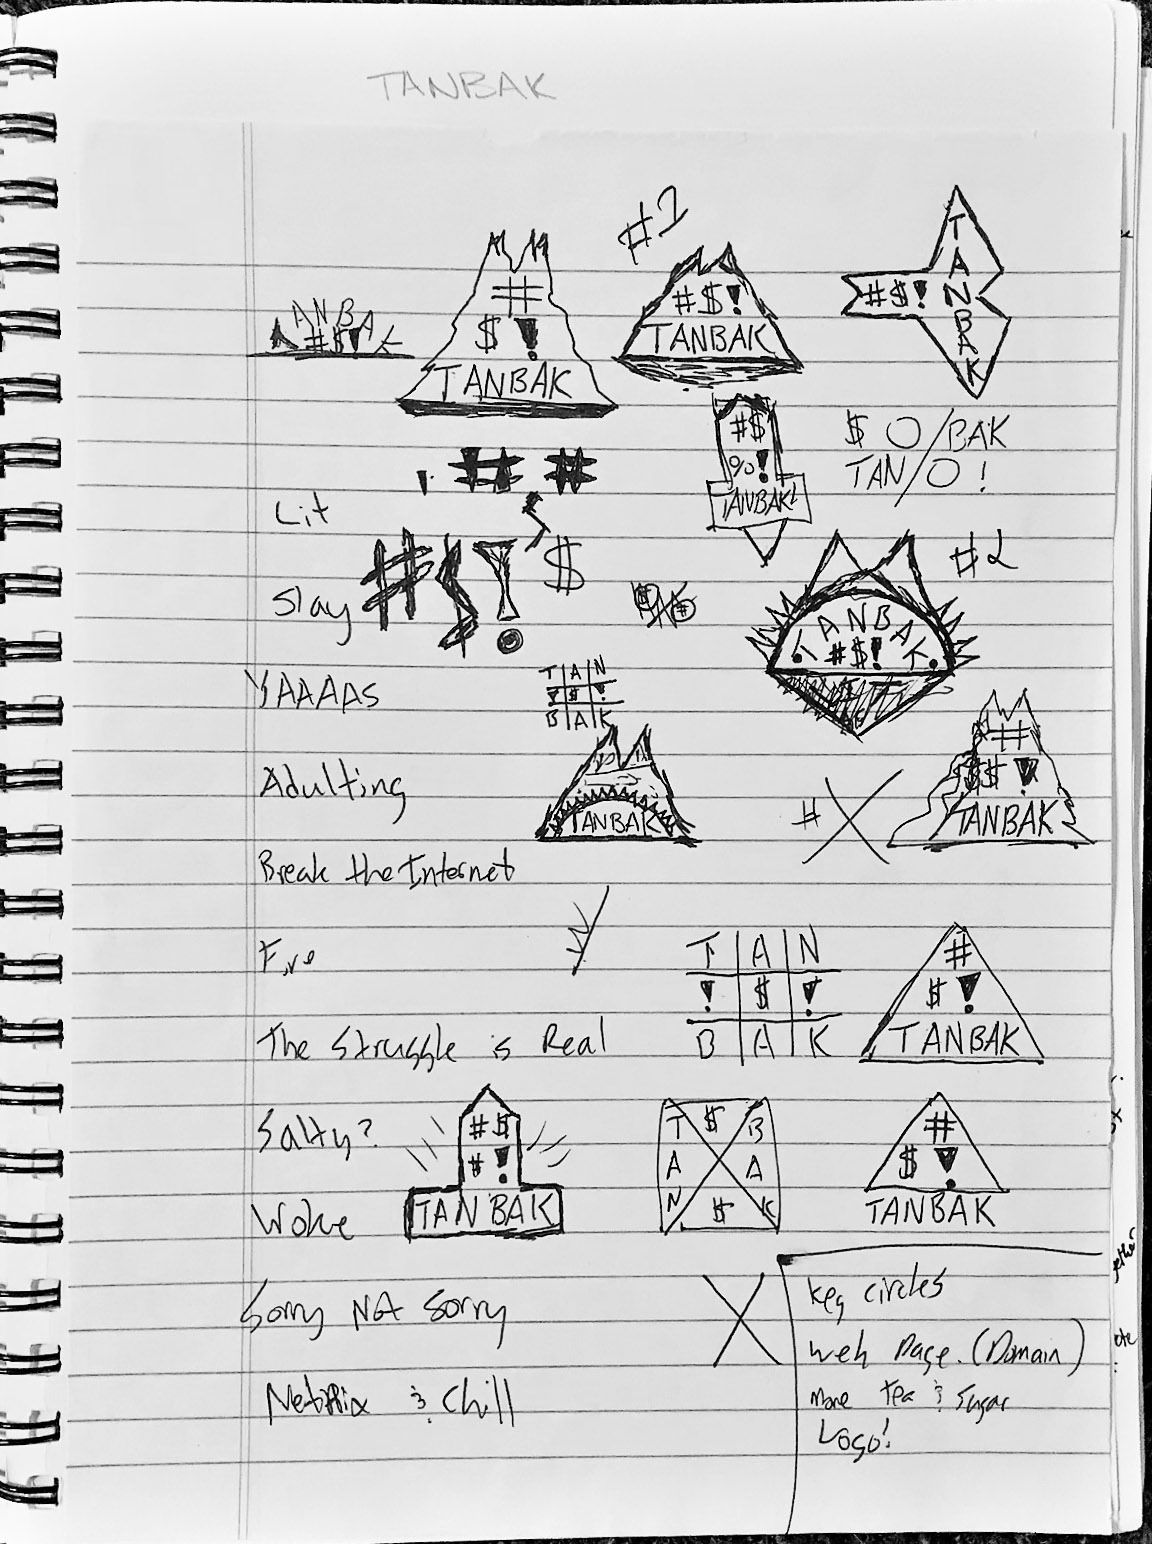 TANBAK
#1
TANBAK
#$!
#
$ !
TANBAK
#$!
TANBAK
TANBAK
#$!
#$
%!
TANBAK!
$ O/BAK
TAN/O !
! # #
Lit
#$!
$
#2
Slay
TANBAK
#$!
T|A|N
!|$|!
B|A|K
YAAAAS
#
$$ !
TANBAK
Adulting
TANBAK
#
Break the Internet
Fire
T|A|N
!|$|!
B|A|K
#
$ !
TANBAK
The Struggle is Real
Salty?
#$
#!
TANBAK
T $ B
A A
N $ K
#
$ !
TANBAK
Woke
Sorry Not Sorry
Netflix & Chill
Keg circles
Web Page. (Domain)
More Tea & Sugar
Logo!